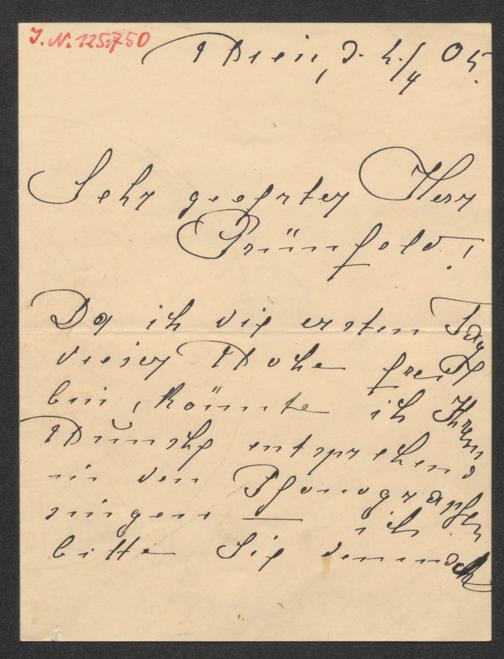 J.N. 125.750
Wien, d. 2./4 05.
Sehr geehrter Herr
Grünfeld!
Da ich die ersten Tag
dieser Woche frei
bin, könnte ich Ihrem
Wunsche entsprechend
in den Phonographen
singen — ich
bitte Sie demnach